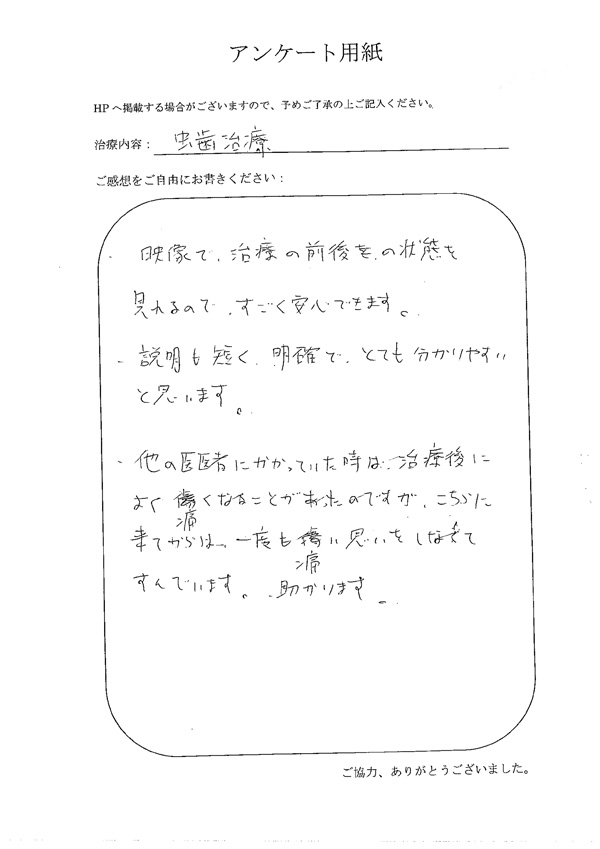 アンケート用紙
HPへ掲載する場合がございますので、予めご了承の上ご記入ください。
治療内容： 虫歯治療
ご感想をご自由にお書きください：
・映像で、治療の前後を、の状態を
見れるので、すごく安心できます。
・説明も短く、明確で、とても分かりやすい
と思います。
・他の医者にかかっていた時は、治療後に
よく傷くなることがあったのですが、こちらに
痛
来てからは、一度も傷い思いをしなくて
痛
すんでいます。助かります。
ご協力、ありがとうございました。